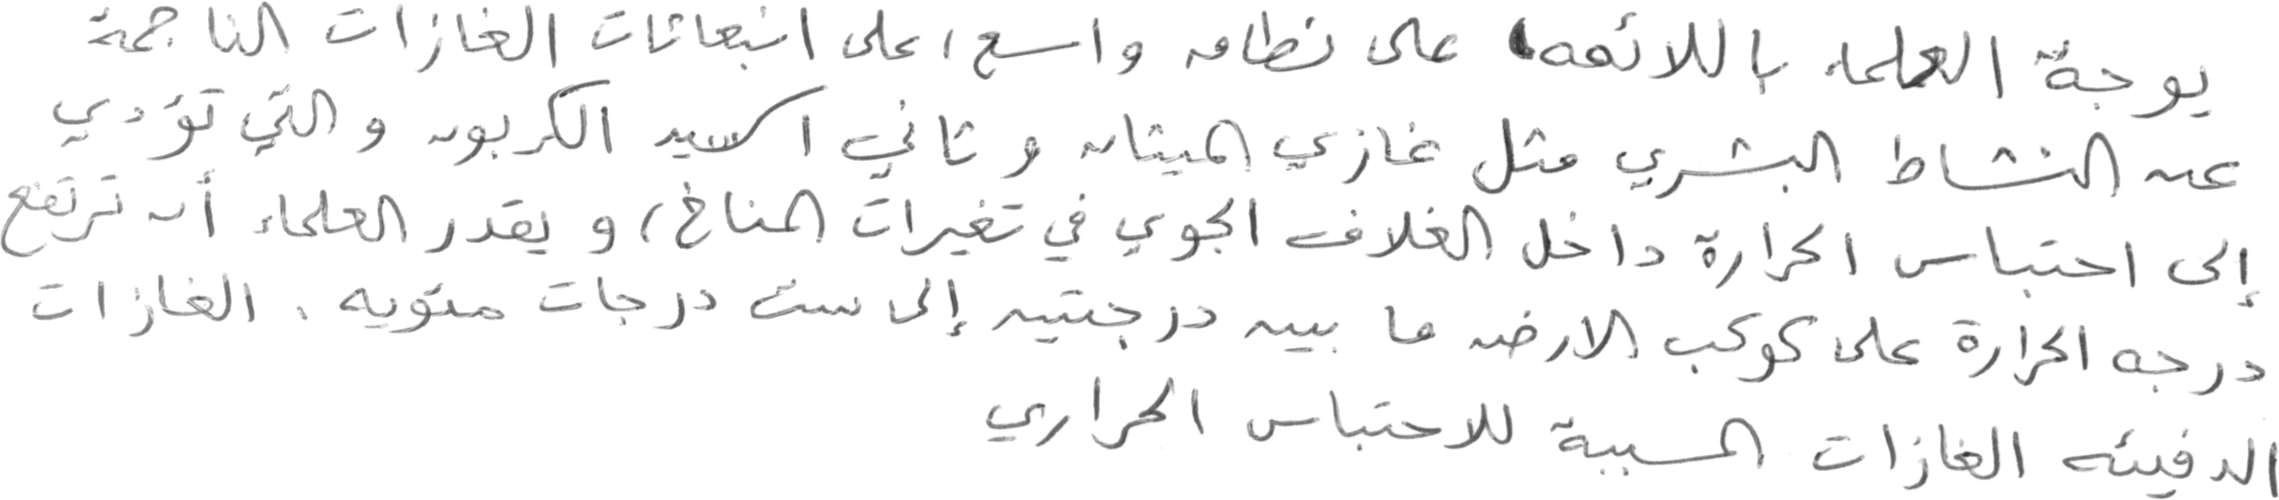 يوجة العلماء باللائمه على نطاق واسع، على انبعاثات الغازات الناجمة
عن النشاط البشري مثل غازي الميثان و ثاني اكسيد الكربون و التي تؤدي
إلى احتباس الحرارة داخل الغلاف الجوي في تغيرات المناخ، و يقدر العلماء أن ترتفع
درجه الحرارة على كوكب الارض ما بين درجتين إلى ست درجات مئويه . الغازات
الدفيئه الغازات المسببة للاحتباس الحراري